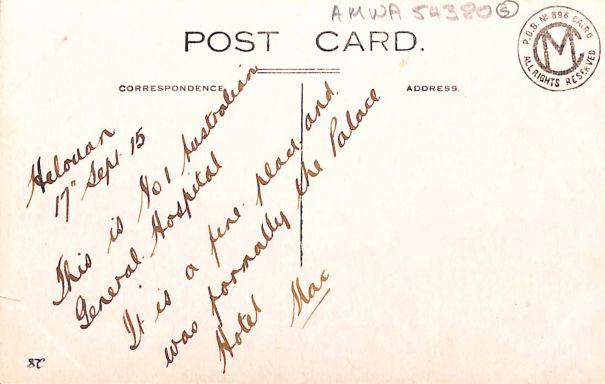 AMWA 54380 5
POST CARD.
P.O.B. No 896 CAIRO
MC
ALL RIGHTS RESERVED
CORRESPONDENCE
ADDRESS.
Helouan
17" Sept 15
This is No 1 Australian
General Hospital
It is a fine place and
was formally the Palace
Hotel Mac